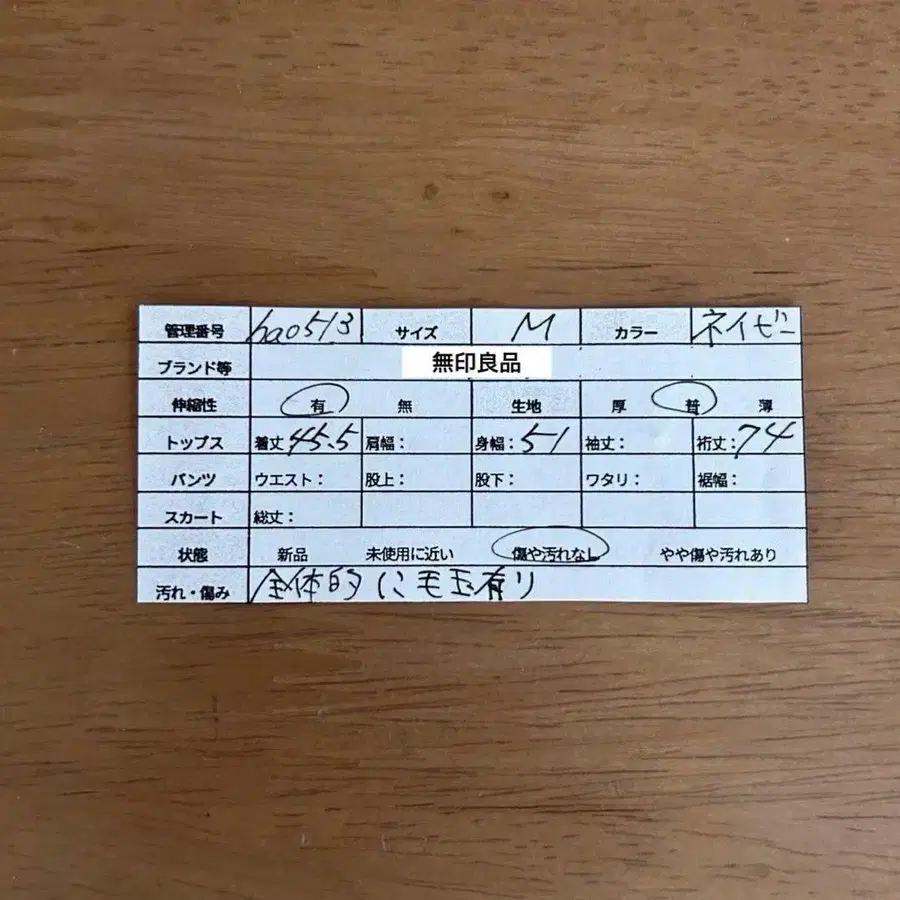 管理番号 ha0513 サイズ M カラー ネイビー
ブランド等 無印良品
伸縮性 有 無 生地 厚 普 薄
トップス 着丈 45.5 肩幅： 身幅：51 袖丈： 裄丈：74
パンツ ウエスト： 股上： 股下： ワタリ： 裾幅：
スカート 総丈：
状態 新品 未使用に近い 傷や汚れなし やや傷や汚れあり
汚れ・傷み 全体的に毛玉有り